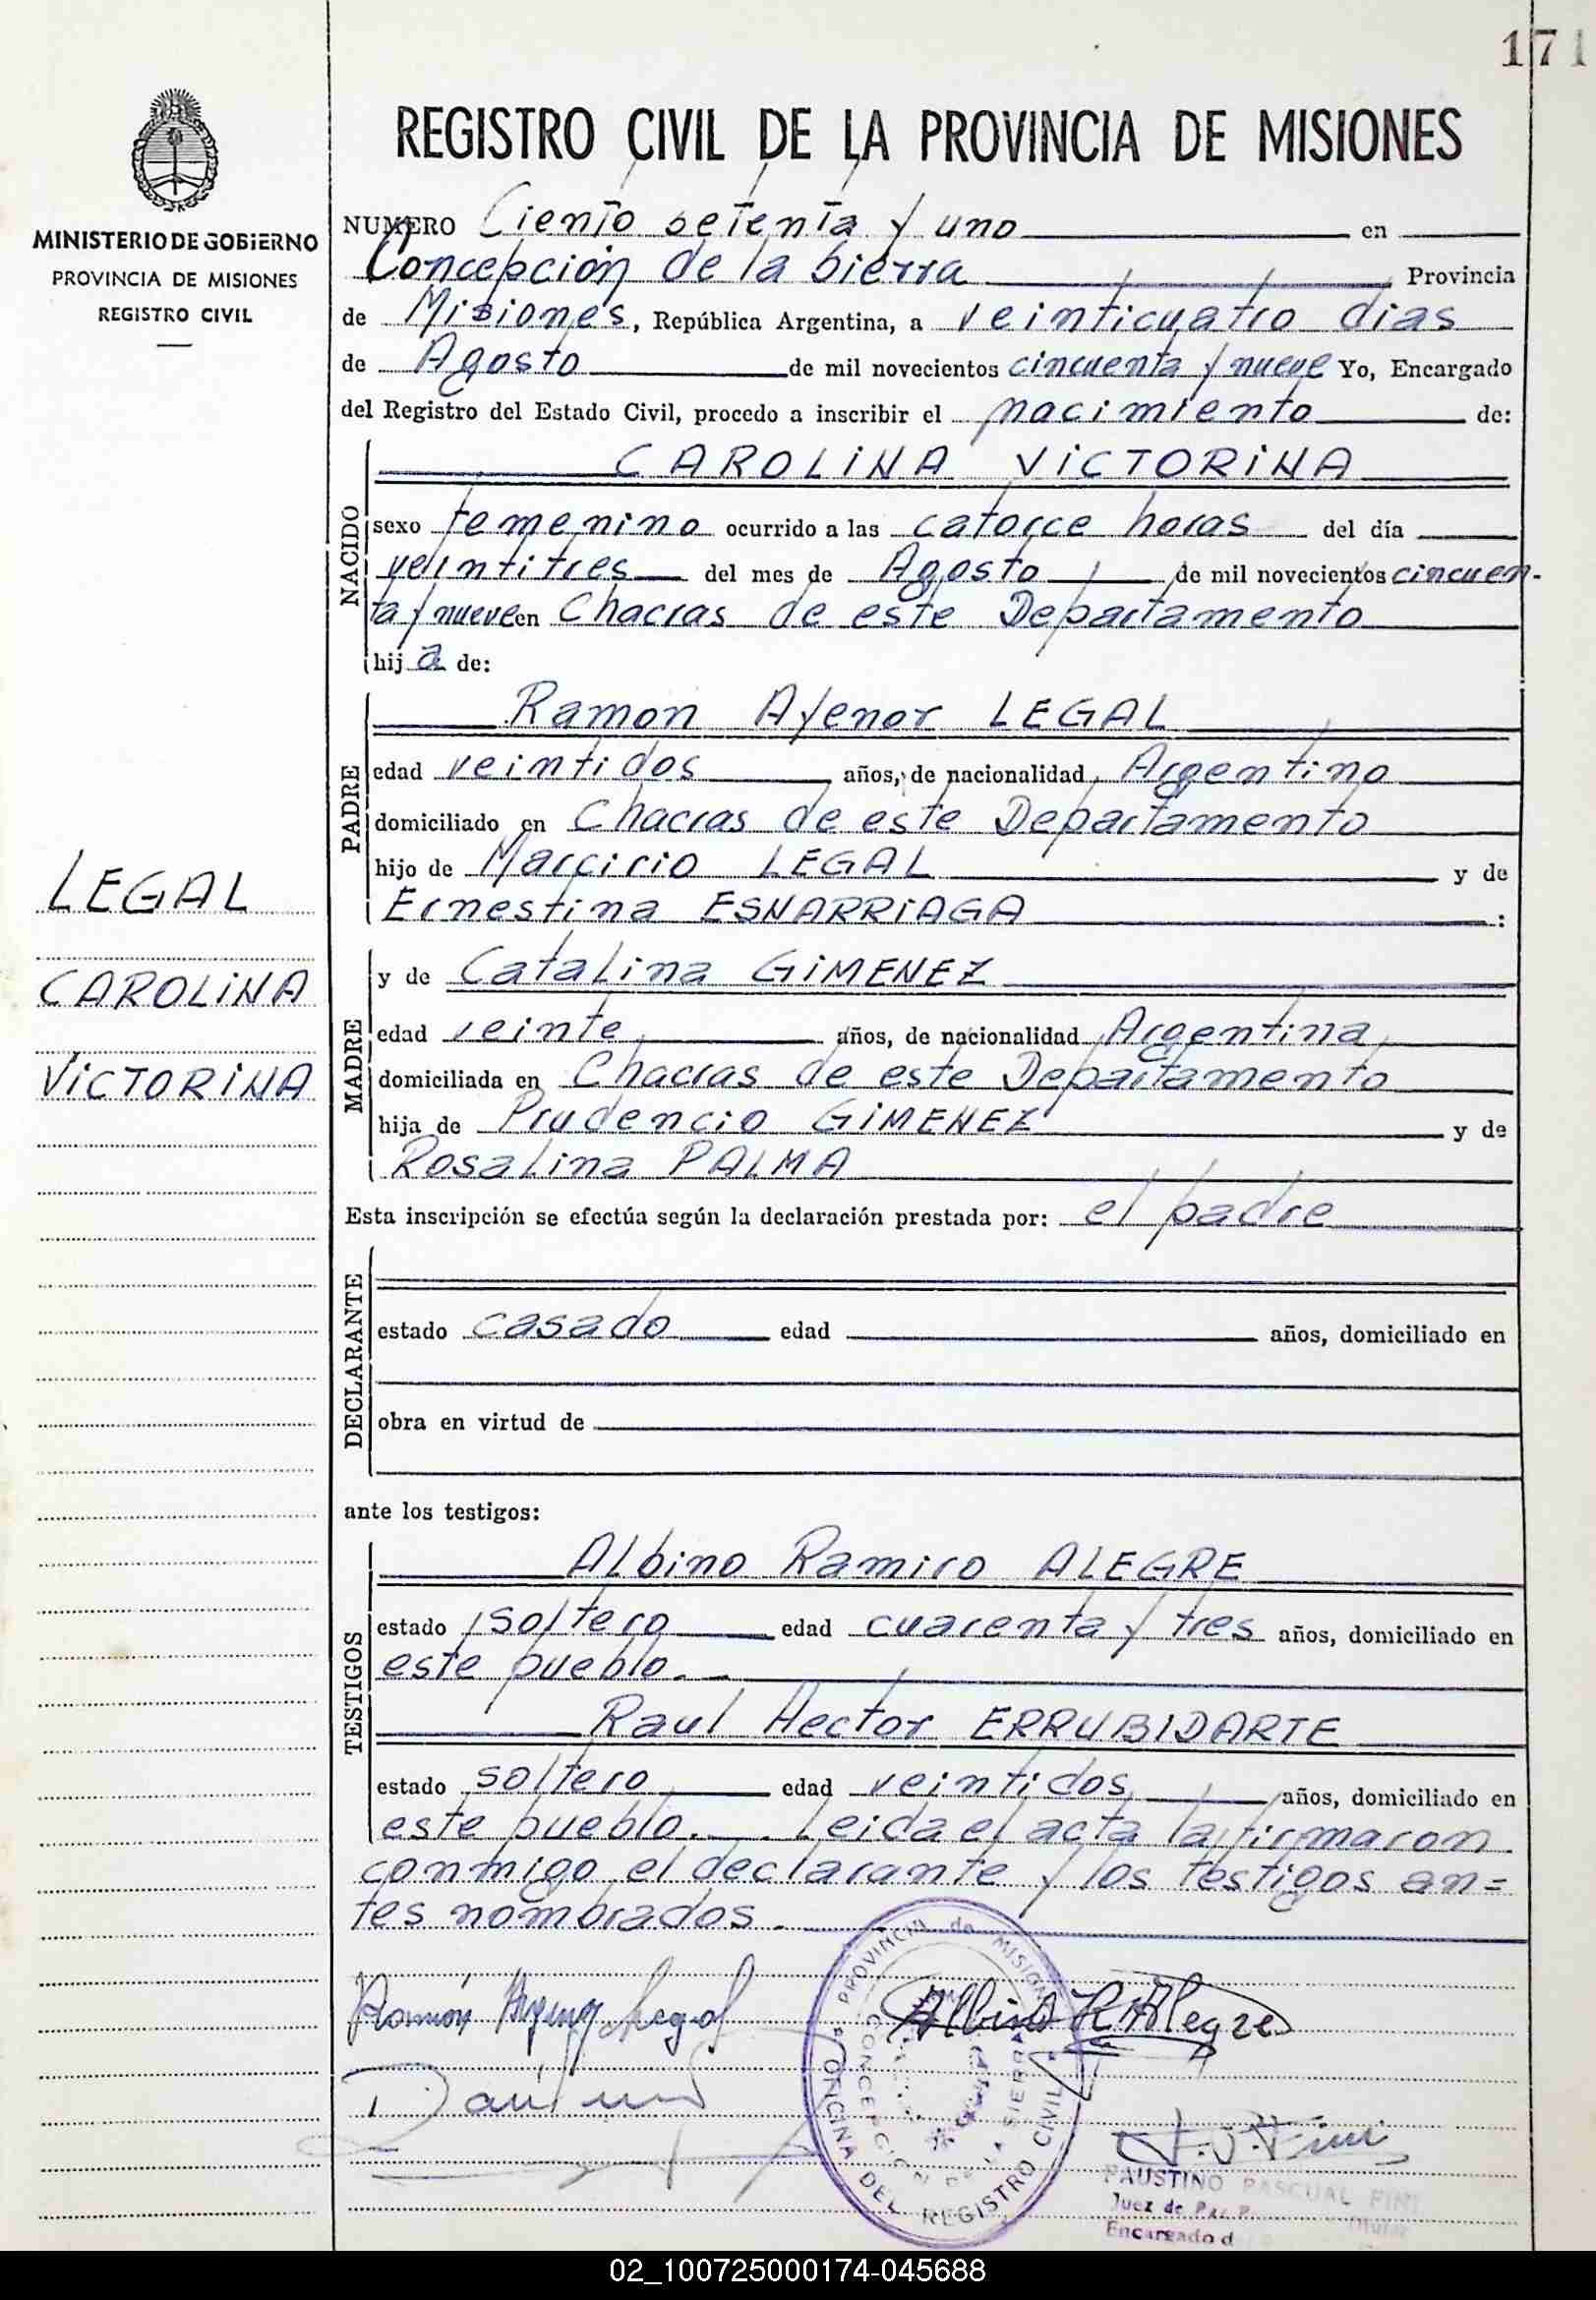 171
MINISTERIO DE GOBIERNO
PROVINCIA DE MISIONES
REGISTRO CIVIL
REGISTRO CIVIL DE LA PROVINCIA DE MISIONES
NUMERO Ciento setenta y uno en
Concepción de la Sierra Provincia
de Misiones, República Argentina, a veinticuatro dias
de Agosto de mil novecientos cincuenta y nueve Yo, Encargado
del Registro del Estado Civil, procedo a inscribir el nacimiento de:
NACIDO
CAROLINA VICTORINA
sexo femenino ocurrido a las catorce horas del día
veintitres del mes de Agosto de mil novecientos cincuen-
ta y nueve en Chacras de este Departamento
hij a de:
PADRE
Ramon Ayenor LEGAL
edad veintidos años, de nacionalidad Argentino
domiciliado en Chacras de este Departamento
hijo de Marcirio LEGAL y de
Ernestina ESNARRIAGA :
LEGAL
CAROLINA
VICTORINA
MADRE
y de Catalina GIMENEZ
edad veinte años, de nacionalidad Argentina
domiciliada en Chacras de este Departamento
hija de Prudencio GIMENEZ y de
Rosalina PALMA
Esta inscripción se efectúa según la declaración prestada por: el padre
DECLARANTE
estado casado edad años, domiciliado en
obra en virtud de
ante los testigos:
TESTIGOS
Albino Ramiro ALEGRE
estado soltero edad cuarenta y tres años, domiciliado en
este pueblo.
Raul Hector ERRUBIDARTE
estado soltero edad veintidos años, domiciliado en
este pueblo. Leida el acta la firmaron
conmigo el declarante y los testigos an=
tes nombrados.
Ramón Legal
Albino R Alegre
PROVINCIA de MISIONES
OFICINA DEL REGISTRO CIVIL
CONCEPCION DE LA SIERRA
FAUSTINO PASCUAL FINI
Juez de Paz
Encargado d
02_100725000174-045688